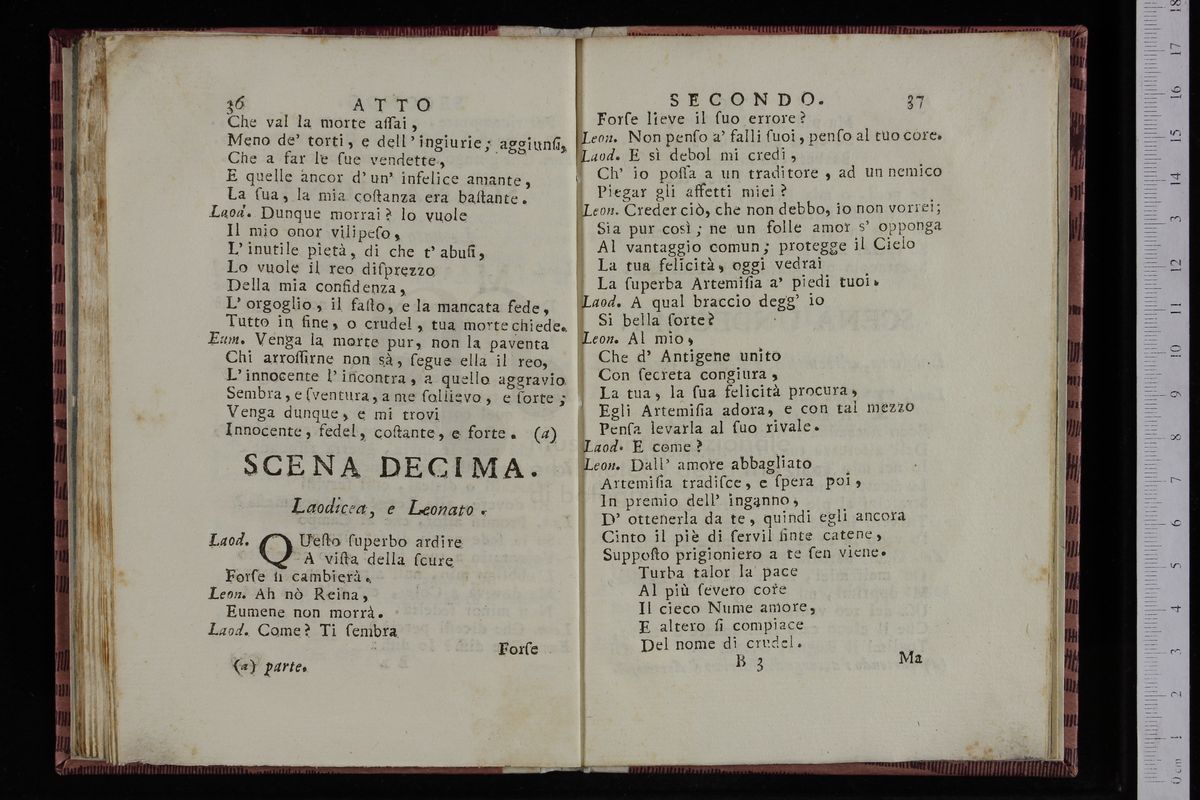 36 ATTO
Che val la morte aſſai,
Meno de' torti, e dell' ingiurie; aggiunſi,
Che a far le ſue vendette,
E quelle ancor d' un' infelice amante,
La ſua, la mia coſtanza era baſtante.
Laod. Dunque morrai? lo vuole
Il mio onor vilipeſo,
L' inutile pietà, di che t' abuſi,
Lo vuole il reo diſprezzo
Della mia confidenza,
L' orgoglio, il faſto, e la mancata fede,
Tutto in fine, o crudel, tua morte chiede.
Eum. Venga la morte pur, non la paventa
Chi arroſſirne non sà, ſegue ella il reo,
L' innocente l' incontra, a quello aggravio
Sembra, e ſventura, a me ſollievo, e ſorte;
Venga dunque, e mi trovi
Innocente, fedel, coſtante, e forte. (a)
SCENA DECIMA.
Laodicea, e Leonato.
Laod. QUeſto ſuperbo ardire
A viſta della ſcure
Forſe ſi cambierà.
Leon. Ah nò Reina,
Eumene non morrà.
Laod. Come? Ti ſembra
Forſe
(a) parte.
SECONDO. 37
Forſe lieve il ſuo errore?
Leon. Non penſo a' falli ſuoi, penſo al tuo core.
Laod. E sì debol mi credi,
Ch' io poſſa a un traditore, ad un nemico
Piegar gli affetti miei?
Leon. Creder ciò, che non debbo, io non vorrei;
Sia pur così; ne un folle amor s' opponga
Al vantaggio comun; protegge il Cielo
La tua felicità, oggi vedrai
La ſuperba Artemiſia a' piedi tuoi.
Laod. A qual braccio degg' io
Si bella ſorte?
Leon. Al mio,
Che d' Antigene unito
Con ſecreta congiura,
La tua, la ſua felicità procura,
Egli Artemiſia adora, e con tal mezzo
Penſa levarla al ſuo rivale.
Laod. E come?
Leon. Dall' amore abbagliato
Artemiſia tradiſce, e ſpera poi,
In premio dell' inganno,
D' ottenerla da te, quindi egli ancora
Cinto il piè di ſervil finte catene,
Suppoſto prigioniero a te ſen viene.
Turba talor la pace
Al più ſevero core
Il cieco Nume amore,
E altero ſi compiace
Del nome di crudel.
B 3 Ma